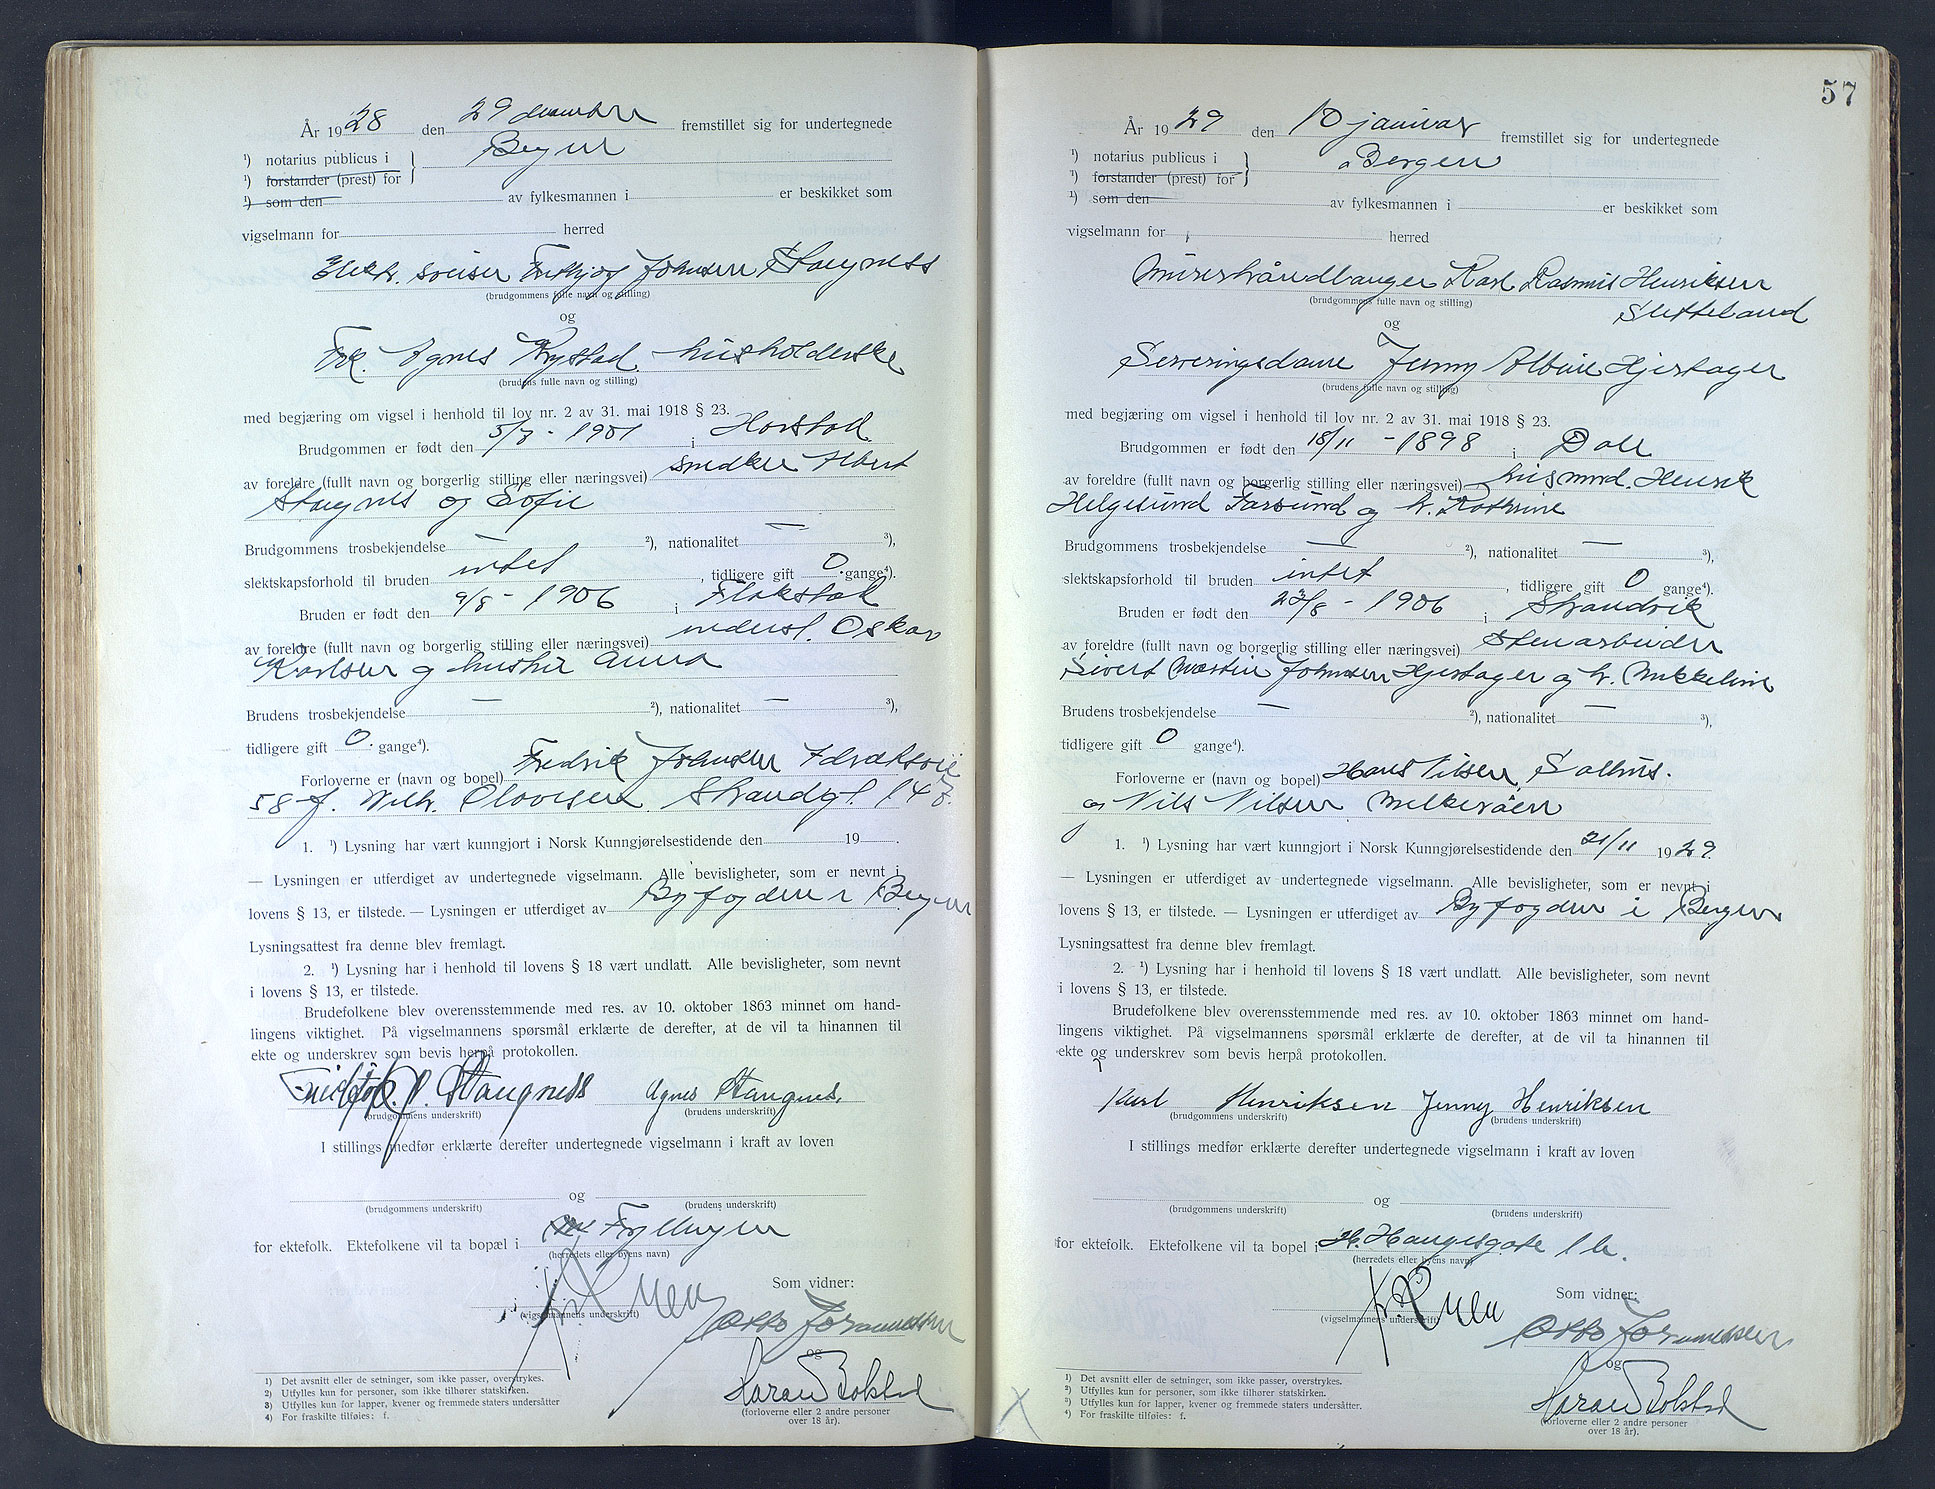 År 1928 den 29 desember fremstillet sig for undertegnede
¹) notarius publicus i Bergen
¹) forstander (prest) for
¹) som den av fylkesmannen i er beskikket som
vigselmann for herred
Elektr. sveiser Fridtjof Johansen Stangness
(brudgommens fulle navn og stilling)
og
Frk. Agnes Rystad husholderske
(brudens fulle navn og stilling)
med begjæring om vigsel i henhold til lov nr. 2 av 31. mai 1918 § 23.
Brudgommen er født den 5/7 - 1901 i Harstad
av foreldre (fullt navn og borgerlig stilling eller næringsvei) snedker Albert
Stangnes og Sofie
Brudgommens trosbekjendelse — ²), nationalitet — ³),
slektskapsforhold til bruden intet, tidligere gift 0 gange⁴).
Bruden er født den 9/8 - 1906 i Flakstad
av foreldre (fullt navn og borgerlig stilling eller næringsvei) Oskar
Karlsen og hustru Anna
Brudens trosbekjendelse — ²), nationalitet — ³),
tidligere gift 0 gange⁴).
Forloverne er (navn og bopel) Fredrik Johansen
58 - f. Wilh. Olavesen Strandgt. 147
1. ¹) Lysning har vært kunngjort i Norsk Kunngjørelsestidende den 19 .
— Lysningen er utferdiget av undertegnede vigselmann. Alle bevisligheter, som er nevnt i
lovens § 13, er tilstede. — Lysningen er utferdiget av Byfogden i Bergen
Lysningsattest fra denne blev fremlagt.
2. ¹) Lysning har i henhold til lovens § 18 vært undlatt. Alle bevisligheter, som nevnt
i lovens § 13, er tilstede.
Brudefolkene blev overensstemmende med res. av 10. oktober 1863 minnet om hand-
lingens viktighet. På vigselmannens spørsmål erklærte de derefter, at de vil ta hinannen til
ekte og underskrev som bevis herpå protokollen.
Fridtjof J. Stangness Agnes Stangnes.
(brudgommens underskrift) (brudens underskrift)
I stillings medfør erklærte derefter undertegnede vigselmann i kraft av loven
og
(brudgommens underskrift) (brudens underskrift)
for ektefolk. Ektefolkene vil ta bopæl i Fyllingen
(herredets eller byens navn)
Som vidner:
(vigselmannens underskrift)
Otto Johannessen
og
Haran Bolstad
(forloverne eller 2 andre personer
over 18 år).
1) Det avsnitt eller de setninger, som ikke passer, overstrykes.
2) Utfylles kun for personer, som ikke tilhører statskirken.
3) Utfylles kun for lapper, kvener og fremmede staters undersåtter
4) For fraskilte tilføies: f.
57
År 1929 den 10 januar fremstillet sig for undertegnede
¹) notarius publicus i Bergen
¹) forstander (prest) for
¹) som den av fylkesmannen i er beskikket som
vigselmann for herred
Murerhåndlanger Karl Rasmus Henriksen
Sletteland
(brudgommens fulle navn og stilling)
og
Serveringsdame Jenny Albine Hjertager
(brudens fulle navn og stilling)
med begjæring om vigsel i henhold til lov nr. 2 av 31. mai 1918 § 23.
Brudgommen er født den 18/11 - 1898 i Dale
av foreldre (fullt navn og borgerlig stilling eller næringsvei) husmnd. Henrik
Helgesund Farsund og h. Kathrine
Brudgommens trosbekjendelse — ²), nationalitet — ³),
slektskapsforhold til bruden intet, tidligere gift 0 gange⁴).
Bruden er født den 23/8 - 1906 i Strandvik
av foreldre (fullt navn og borgerlig stilling eller næringsvei) Stenarbeider
Sivert Martin Johnsen Hjertager og h. Mikkeline
Brudens trosbekjendelse — ²), nationalitet — ³),
tidligere gift 0 gange⁴).
Forloverne er (navn og bopel) Hans Nilsen, Salhus.
og Nils Nilsen Melkeråen
1. ¹) Lysning har vært kunngjort i Norsk Kunngjørelsestidende den 21/11 1929.
— Lysningen er utferdiget av undertegnede vigselmann. Alle bevisligheter, som er nevnt i
lovens § 13, er tilstede. — Lysningen er utferdiget av Byfogden i Bergen
Lysningsattest fra denne blev fremlagt.
2. ¹) Lysning har i henhold til lovens § 18 vært undlatt. Alle bevisligheter, som nevnt
i lovens § 13, er tilstede.
Brudefolkene blev overensstemmende med res. av 10. oktober 1863 minnet om hand-
lingens viktighet. På vigselmannens spørsmål erklærte de derefter, at de vil ta hinannen til
ekte og underskrev som bevis herpå protokollen.
Karl Henriksen Jenny Henriksen
(brudgommens underskrift) (brudens underskrift)
I stillings medfør erklærte derefter undertegnede vigselmann i kraft av loven
og
(brudgommens underskrift) (brudens underskrift)
for ektefolk. Ektefolkene vil ta bopel i H. Haugesgate 1 b.
(herredets eller byens navn)
Som vidner:
(vigselmannens underskrift)
Otto Johannessen
og
Haran Bolstad
(forloverne eller 2 andre personer
over 18 år).
1) Det avsnitt eller de setninger, som ikke passer, overstrykes.
2) Utfylles kun for personer, som ikke tilhører statskirken.
3) Utfylles kun for lapper, kvener og fremmede staters undersåtter.
4) For fraskilte tilføies: f.